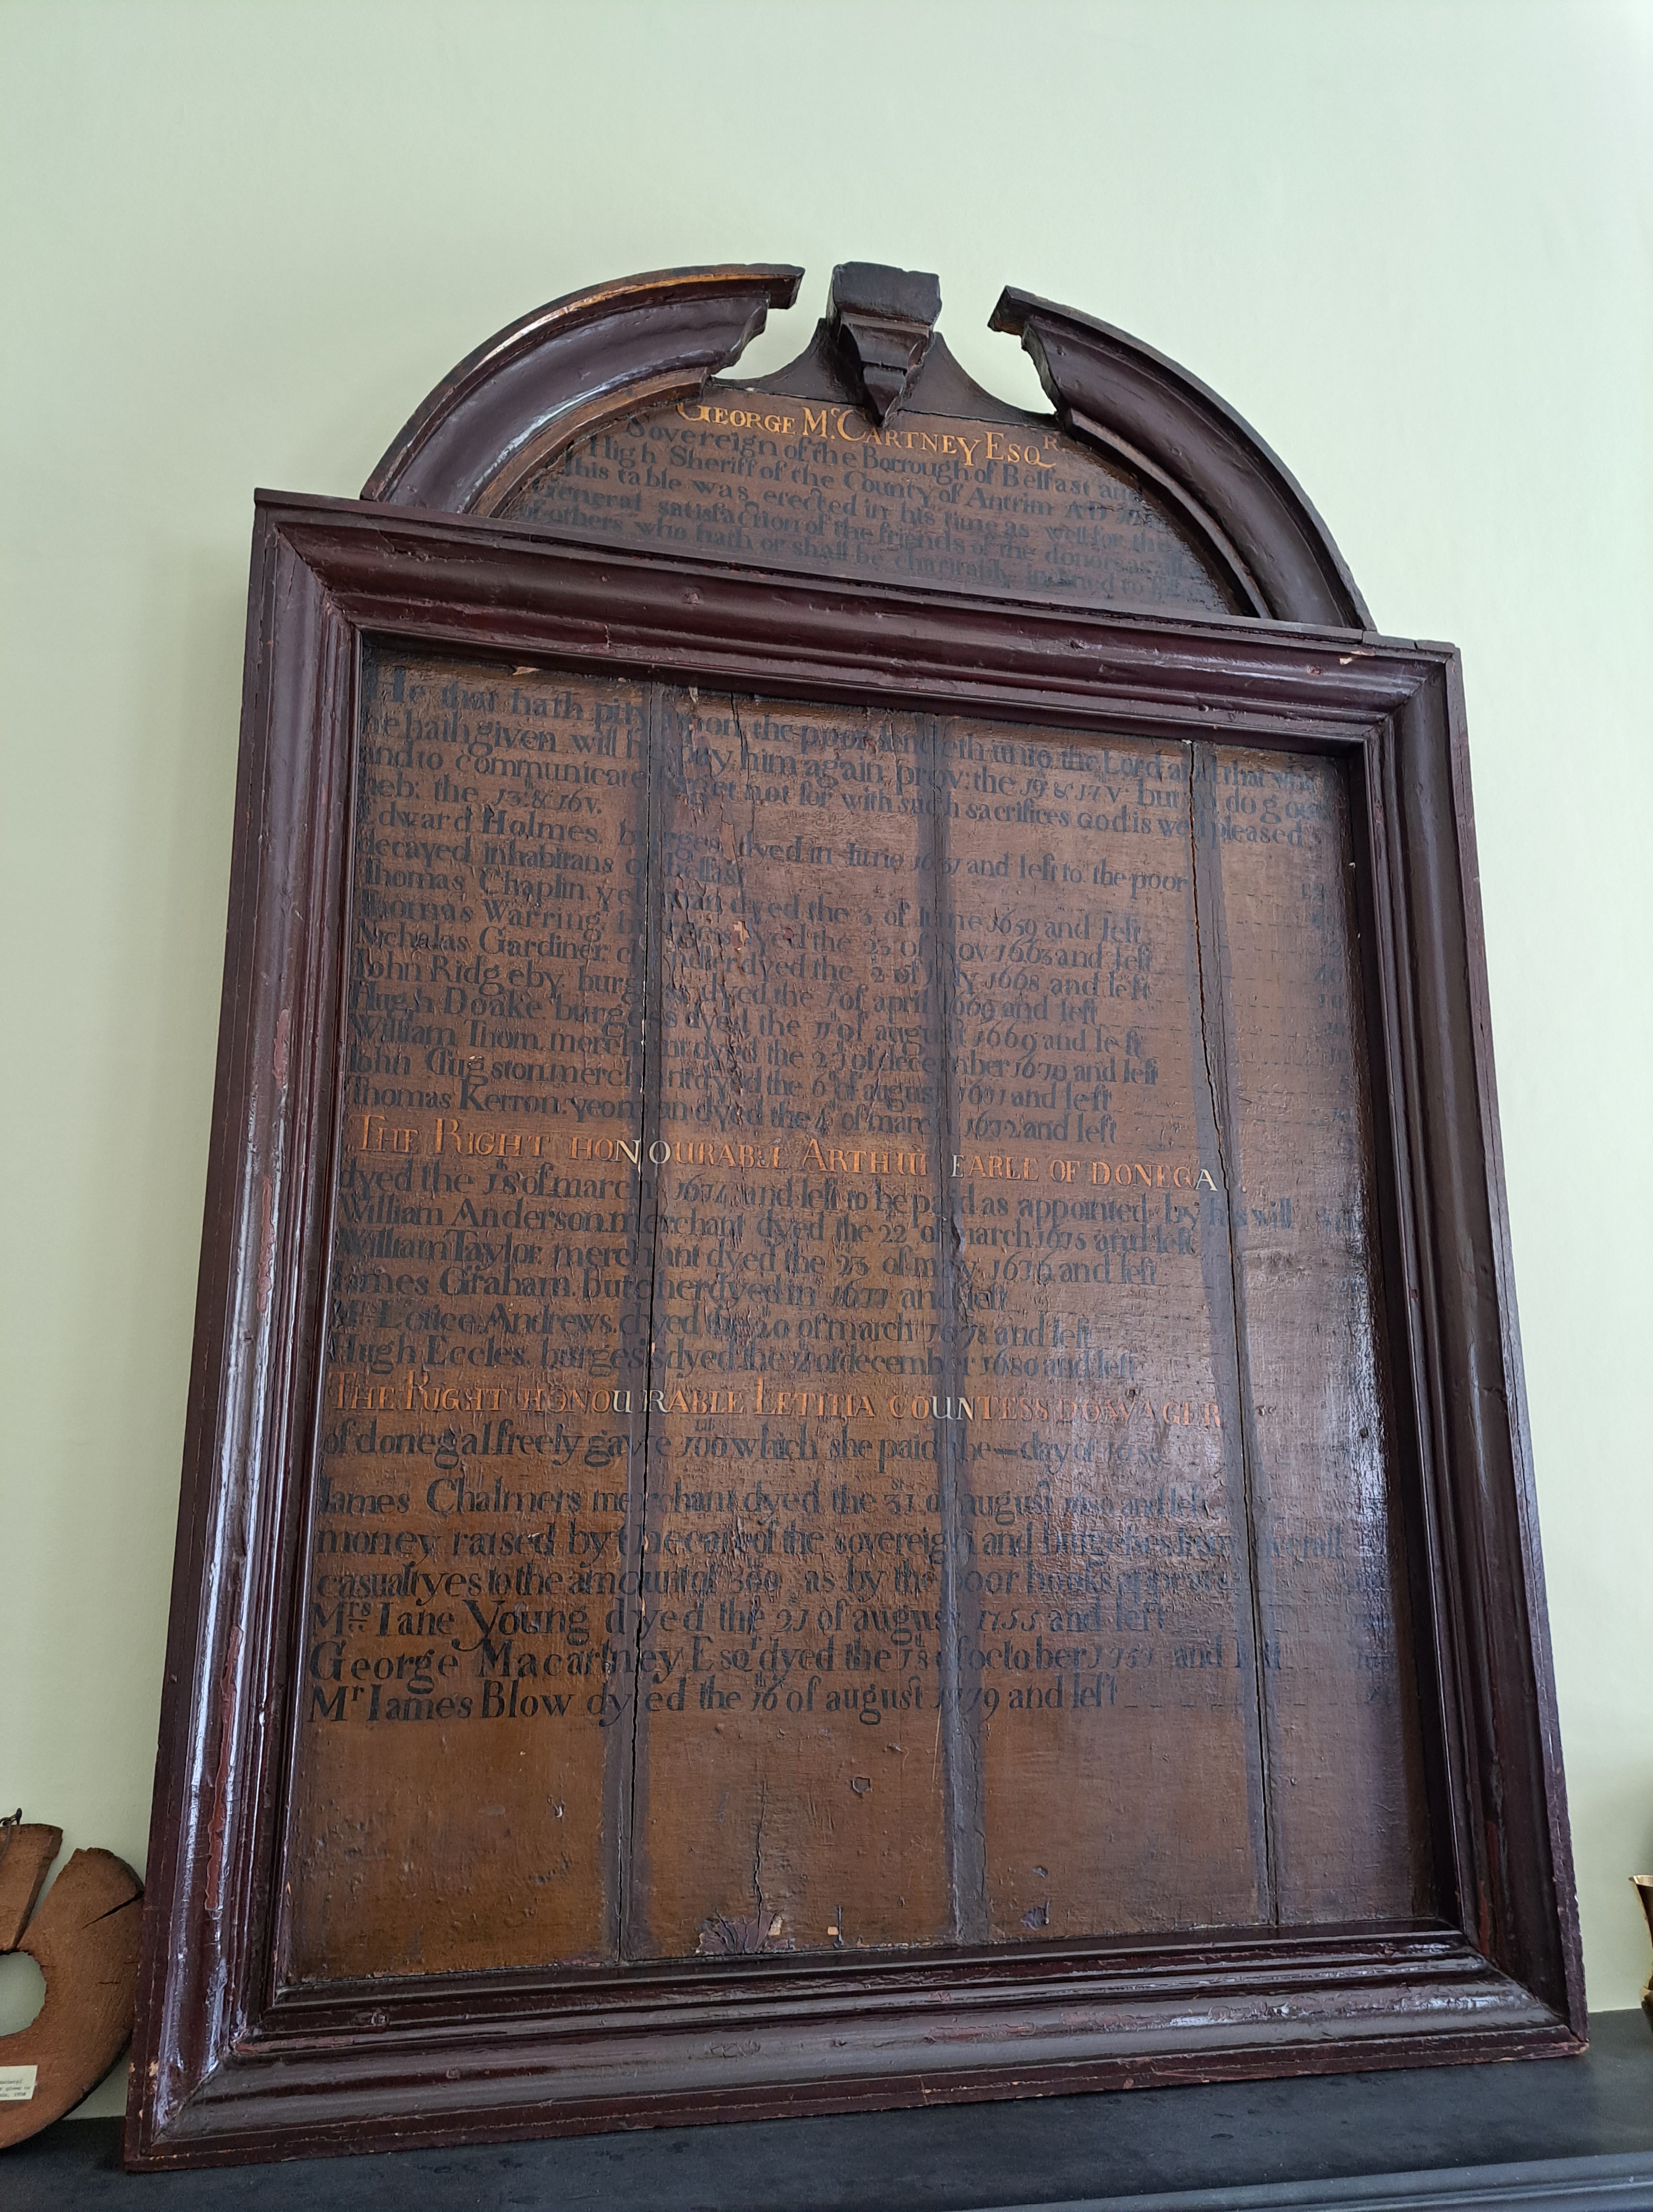 GEORGE McCARTNEY ESQR
Sovereign of the Borrough of Belfast and
High Sheriff of the County of Antrim AD
This table was erected in his time as well for the
General satisfaction of the friends of the donors as
of others who hath or shall be charitably inclined to
He that hath pity upon the poor lendeth unto the Lord and that which
he hath given will he pay him again. prov: the 19 & 17 v. but to do good
and to communicate forget not for with such sacrifices God is well pleased
heb: the 13: & 16 v.
Edward Holmes, burges, dyed in Iune 1631 and left to the poor
decayed inhabitans of Belfast
Thomas Chaplin, yeloman dyed the 3 of Iune 1659 and left
Thomas Warring, burgess, dyed the 23 of Nov 1665 and left
Nicholas Gardiner, chandler dyed the 2 of Iuly 1668 and left
Iohn Ridgeby, burgess, dyed the 1 of april 1669 and left
Hugh Doake burgess dyed the 11 of august 1669 and left
William Thom, merchant dyed the 23 of december 1670 and left
Iohn Clugston, merchant dyed the 6 of august 1671 and left
Thomas Kerron, yeoman dyed the 4 of march 1672 and left
THE RIGHT HONOURABLE ARTHUR EARLE OF DONEGA
dyed the 18 of march 1674 and left to be paid as appointed by his will
William Anderson, merchant dyed the 22 of march 1675 and left
William Taylor, merchant dyed the 23 of may 1676 and left
Iames Graham, butcher dyed in 1677 and left
Andrews, dyed the 20 of march 1678 and left
Hugh Eccles, burgess dyed the of december 1680 and left
THE RIGHT HONOURABLE LETITIA COUNTESS DOWAGER
of donegal freely gave 100lb which she paid the — day of
Iames Chalmers merchant dyed the 31 of august and left
money raised by the care of the sovereign and burgesses from several
casualtyes to the amount of as by the poor books appears
Mrs Iane Young dyed the 21 of august 1755 and left
George Macartney Esqr dyed the 18 of october and left
Mr Iames Blow dyed the 16th of august 1779 and left